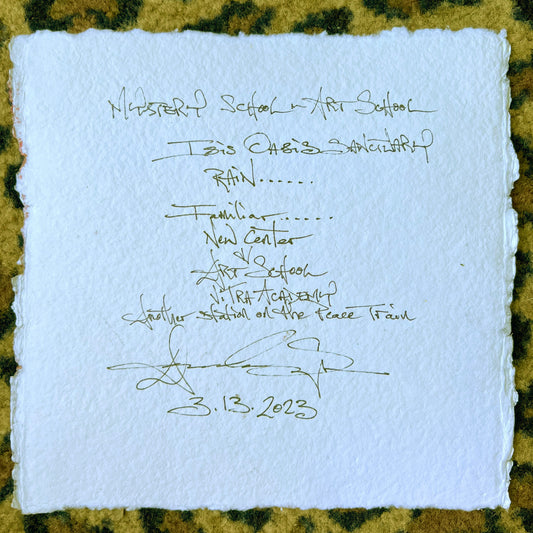 MYSTERY SCHOOL ~ ART SCHOOL
ISIS OASIS SANCTUARY
RAIN......
Familiar......
New Center
ART SCHOOL
ACADEMY
Another station on the Peace Train
3.13.2023